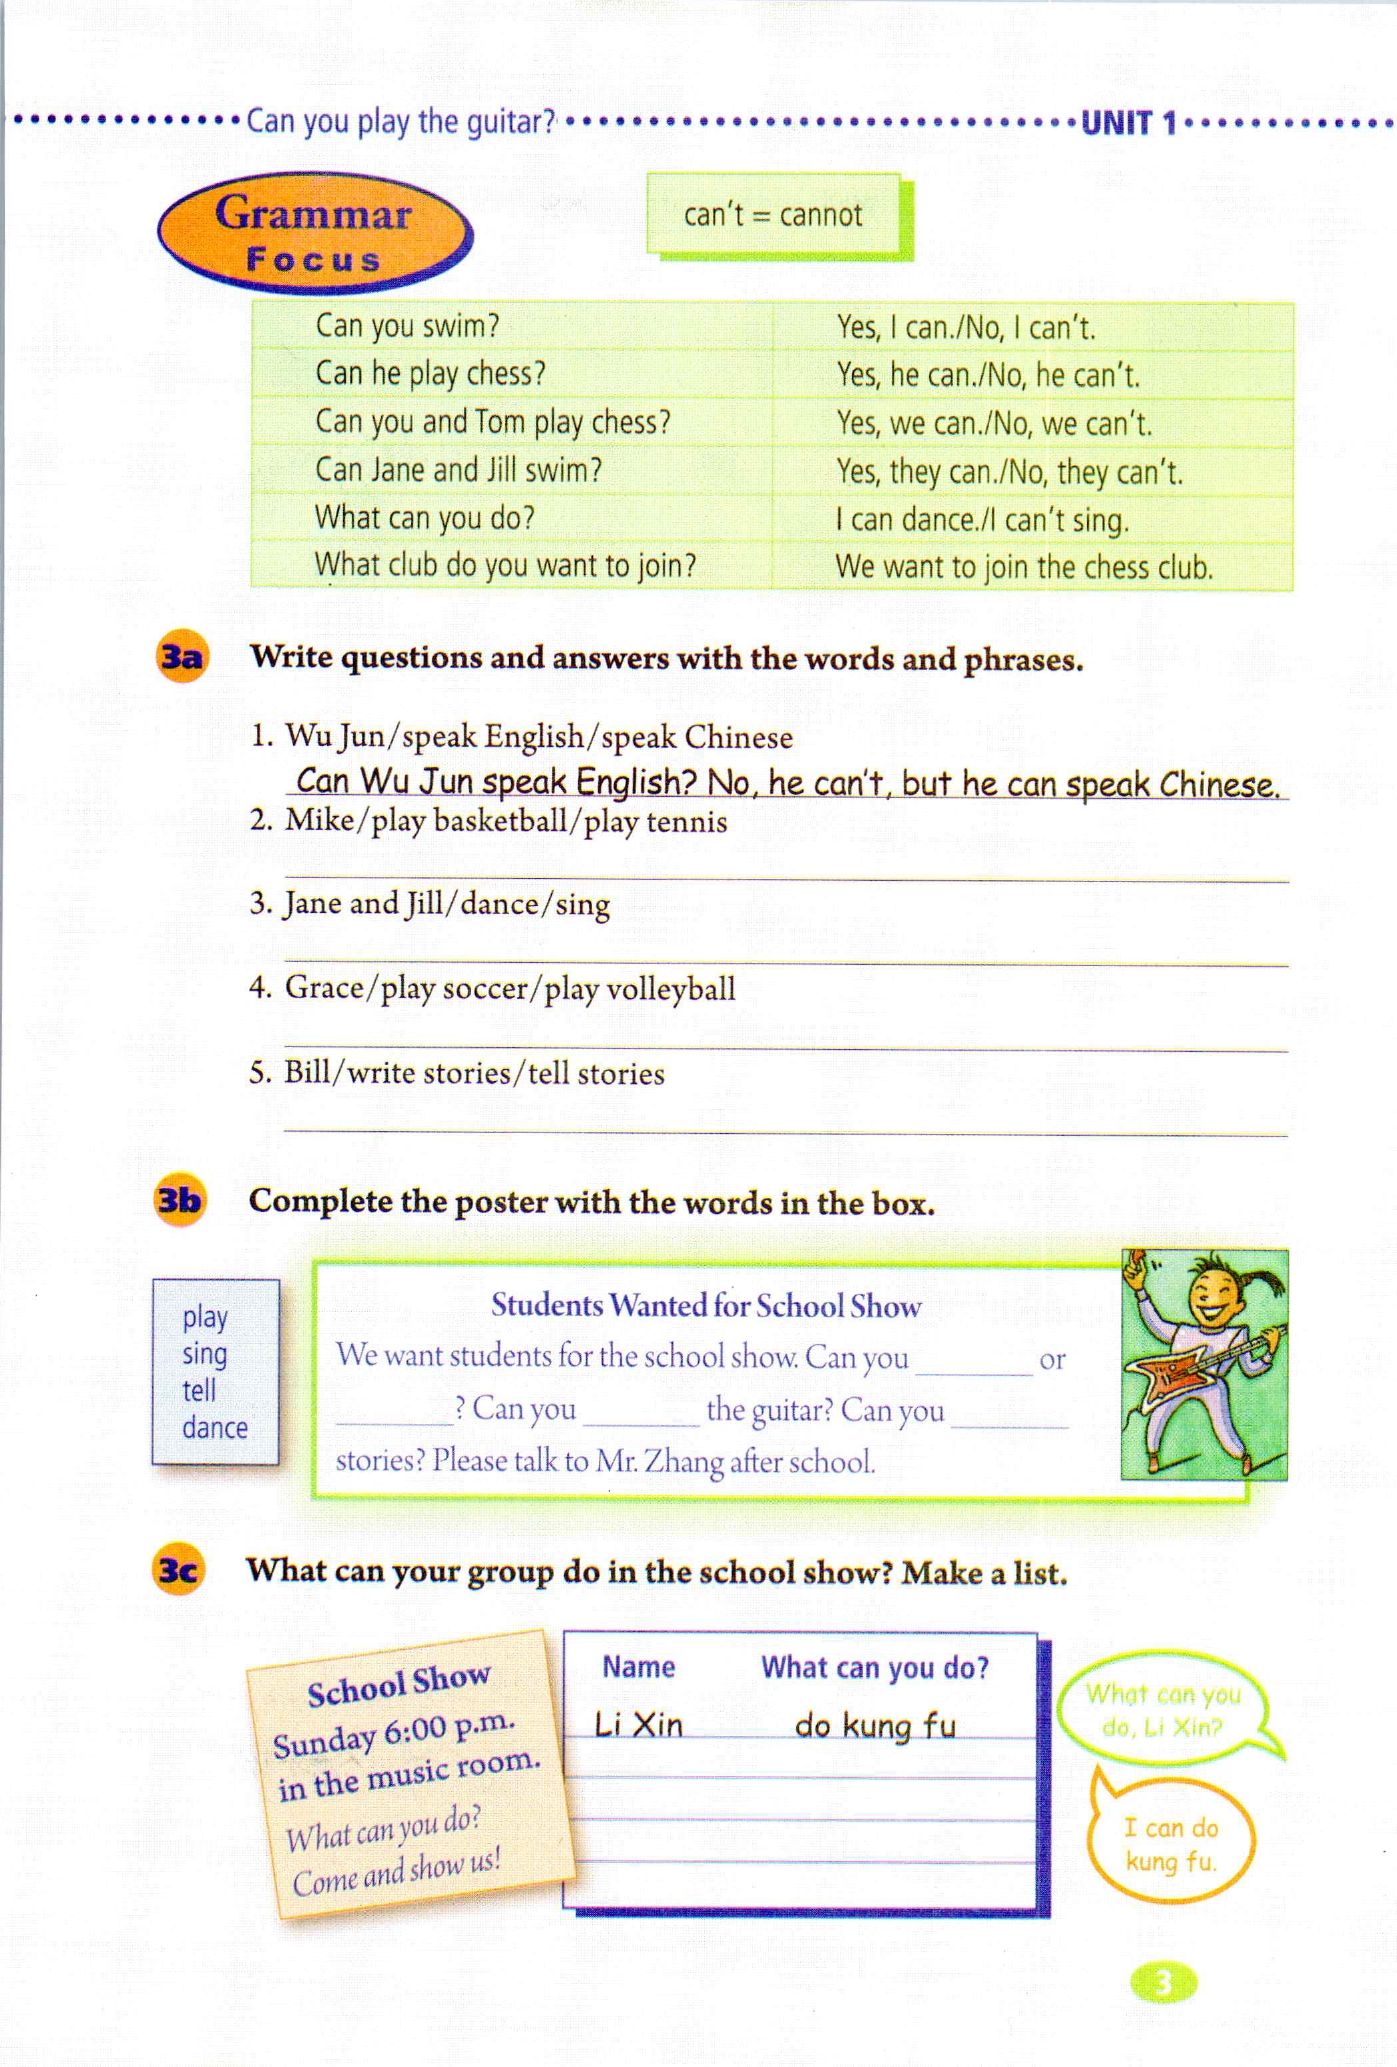 Can you play the guitar? UNIT 1
Grammar
Focus
can't = cannot
Can you swim? Yes, I can./No, I can't.
Can he play chess? Yes, he can./No, he can't.
Can you and Tom play chess? Yes, we can./No, we can't.
Can Jane and Jill swim? Yes, they can./No, they can't.
What can you do? I can dance./I can't sing.
What club do you want to join? We want to join the chess club.
3a Write questions and answers with the words and phrases.
1. Wu Jun/speak English/speak Chinese
Can Wu Jun speak English? No, he can't, but he can speak Chinese.
2. Mike/play basketball/play tennis
3. Jane and Jill/dance/sing
4. Grace/play soccer/play volleyball
5. Bill/write stories/tell stories
3b Complete the poster with the words in the box.
play
sing
tell
dance
Students Wanted for School Show
We want students for the school show. Can you ________ or
________? Can you ________ the guitar? Can you ________
stories? Please talk to Mr. Zhang after school.
3c What can your group do in the school show? Make a list.
School Show
Sunday 6:00 p.m.
in the music room.
What can you do?
Come and show us!
Name What can you do?
Li Xin do kung fu
What can you
do, Li Xin?
I can do
kung fu.
3